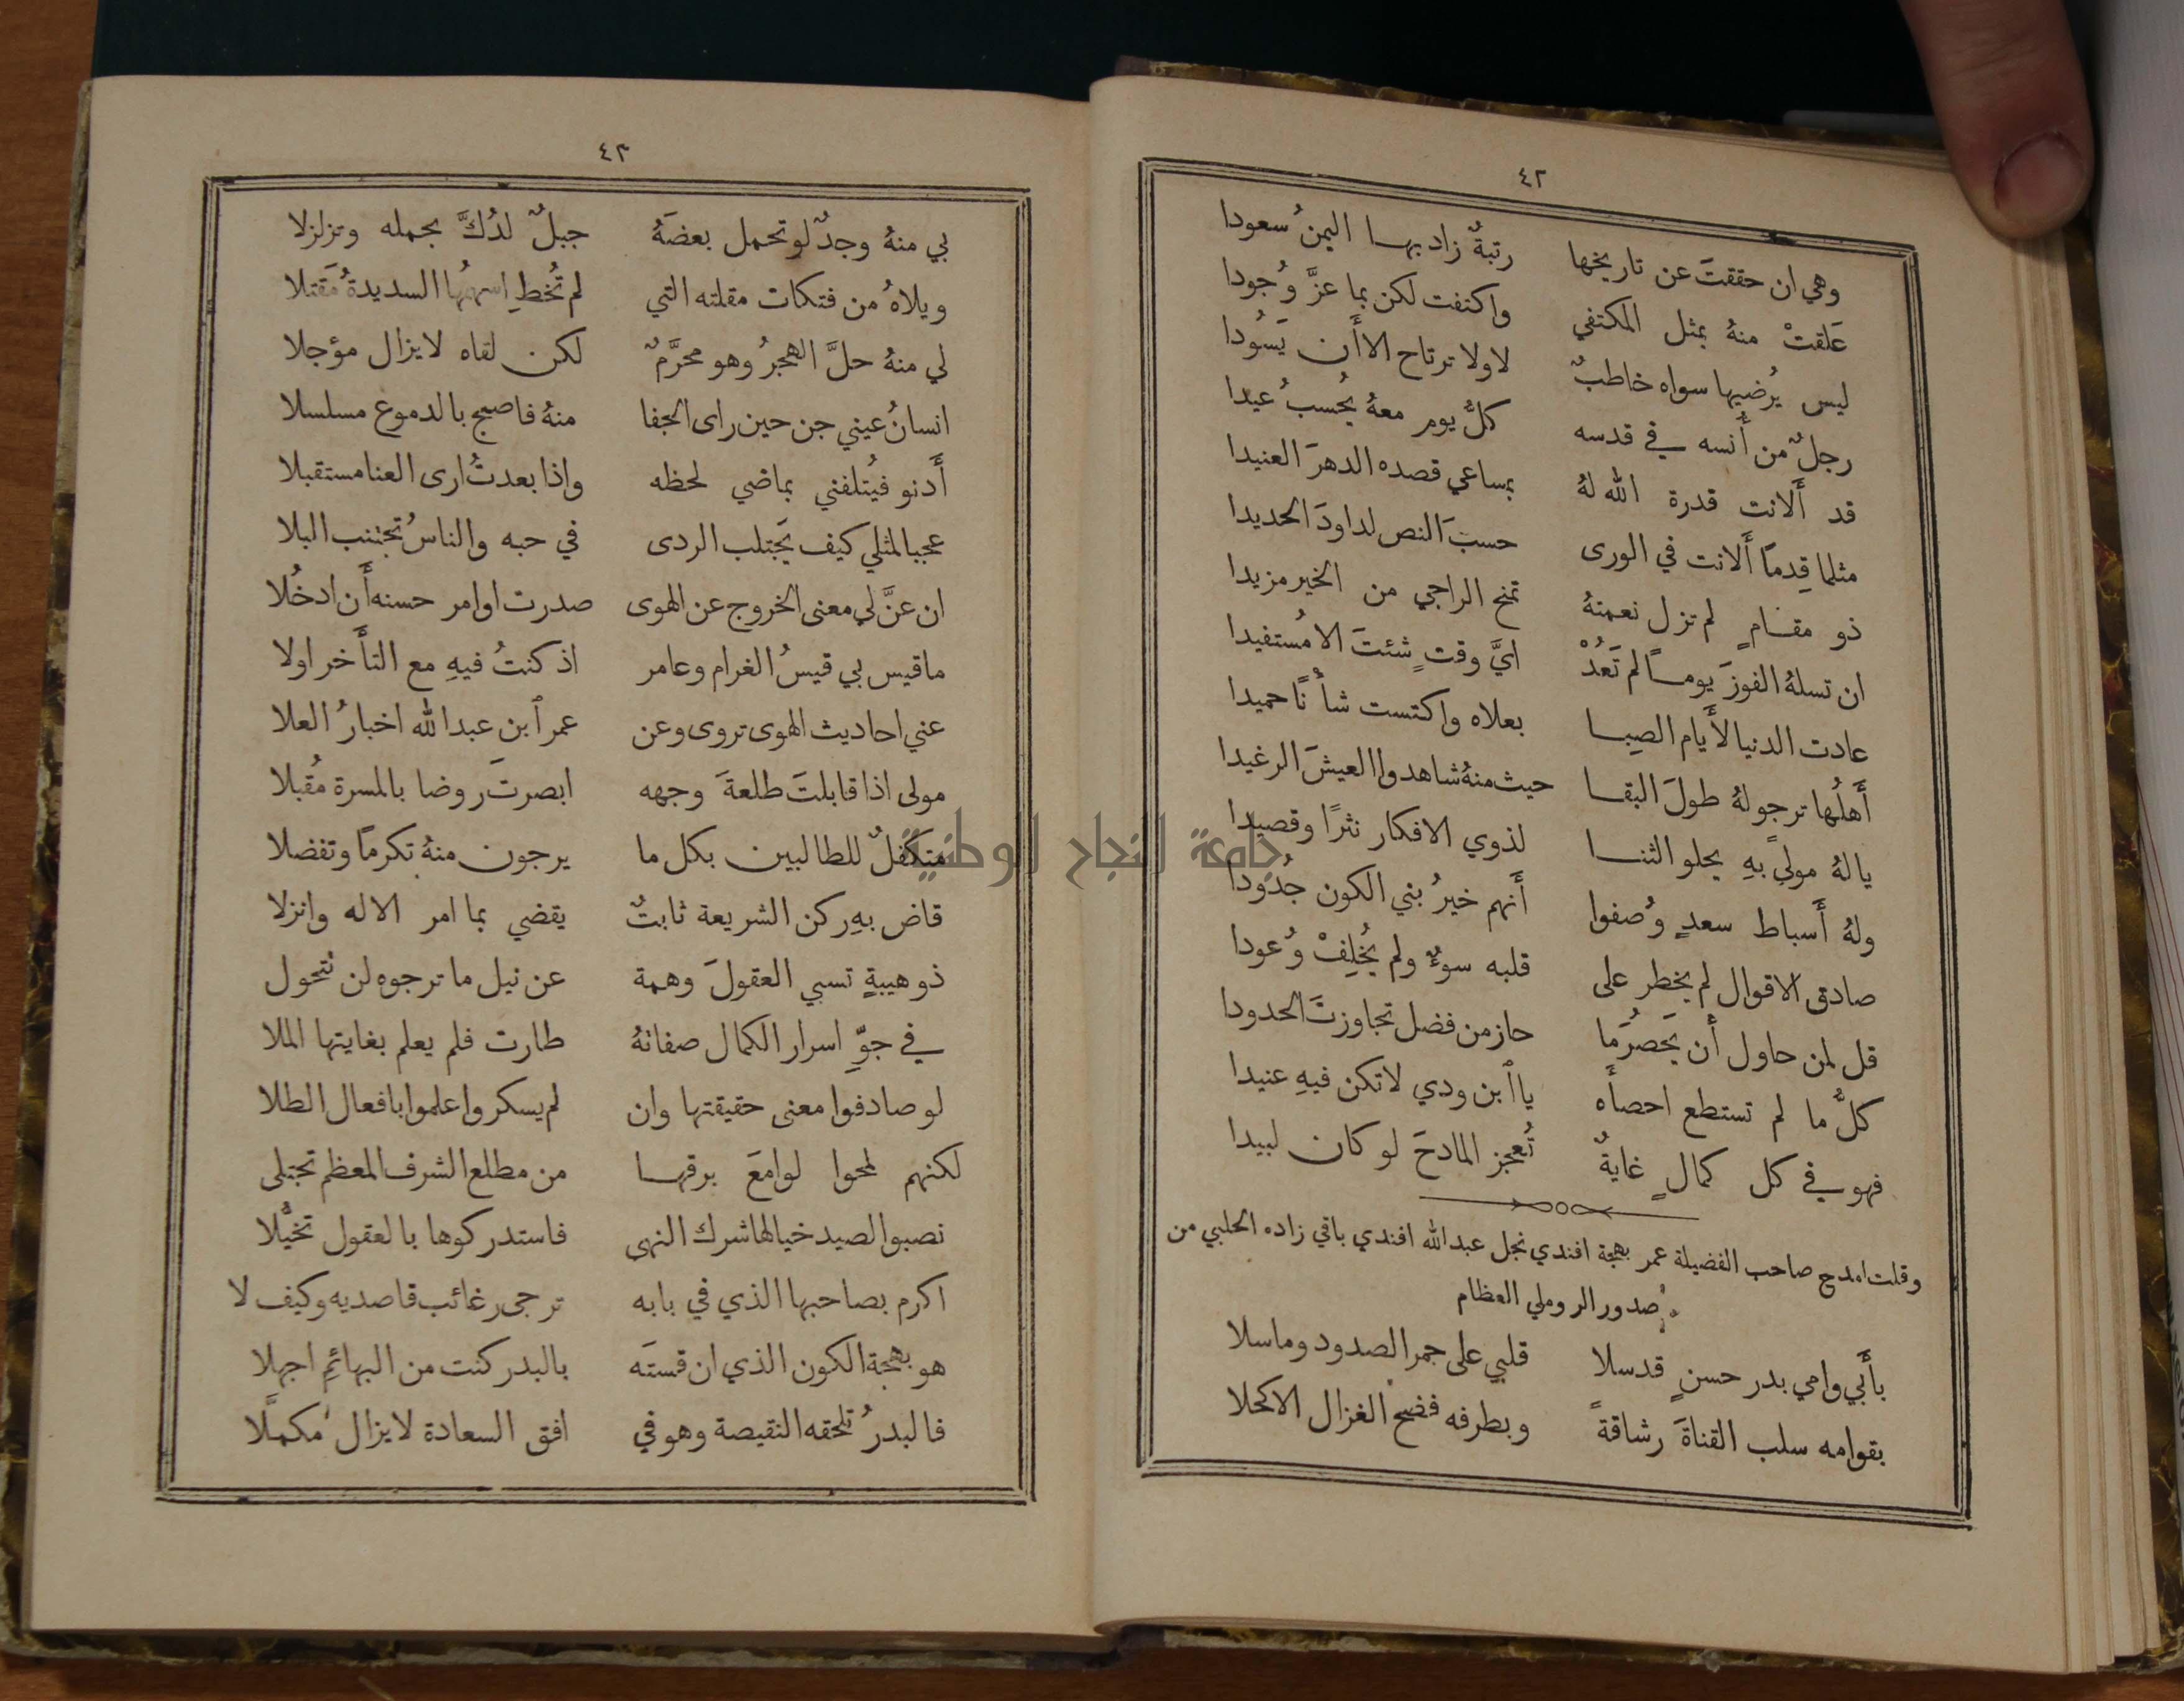 ٤٢
وهي ان حققتَ عن تاريخها رتبةٌ زاد بها اليمنُ سعودا
عَلقتْ منهُ بمثل المكتفي واكتفت لكن بما عزَّ وُجودا
ليس يُرضيها سواه خاطبٌ لا ولا ترتاح الا أَن يَسُودا
رجلٌ من أُنسه في قدسه كلُّ يوم معهُ يُحسبُ عيدا
قد أَلانت قدرة الله لهُ بمساعي قصده الدهرَ العنيدا
مثلما قِدمًا أَلانت في الورى حسبَ النص لداودَ الحديدا
ذو مقامٍ لم تزل نعمتهُ تمنح الراجي من الخير مزيدا
ان تسلهُ الفوزَ يومًا لم تَعُدْ ايَّ وقتٍ شئتَ الا مُستفيدا
عادت الدنيا لأَيام الصِبا بعلاه واكتست شأْنًا حميدا
أَهلُها ترجو لهُ طولَ البقا حيث منهُ شاهدوا العيشَ الرغيدا
يا لهُ مولىً بهِ يحلو الثنا لذوي الافكار نثرًا وقصيدا
ولهُ أَسباط سعدٍ وُصفوا أَنهم خيرُ بني الكون جُدُودا
صادق الاقوال لم يخطر على قلبه سوءٌ ولم يُخلِفْ وُعودا
قل لمن حاول أَن يَحصُرَ مَا حاز من فضل تجاوزتَ الحدودا
كلُّ ما لم تستطع احصأَه يا ٱبن ودي لا تكن فيهِ عنيدا
فهو في كل كمالٍ غايةٌ تُعجز المادحَ لو كان لبيدا
وقلت امدح صاحب الفضيلة عمر بهجة افندي نجل عبد الله افندي باقي زاده الحلبي من
صدور الروملي العظام
بأَبي وامي بدر حسنٍ قد سلا قلبي على جمر الصدود وما سلا
بقوامه سلب القناةَ رشاقةً وبطرفه فضح الغزال الاكحلا
٤٣
بي منهُ وجدٌ لو تحمل بعضَهُ جبلٌ لدُكَّ بجمله وتزلزلا
ويلاهُ من فتكات مقلته التي لم تُخطِ اسهمُها السديدةُ مَقتلا
لي منهُ حلَّ الهجرُ وهو محرَّمٌ لكن لقاه لا يزال مؤجلا
انسانُ عيني جن حين راى الجفا منهُ فاصبح بالدموع مسلسلا
أَدنو فيُتلفني بماضي لحظه واذا بعدتُ ارى العنا مستقبلا
عجبا لمثلي كيف يَجتلب الردى في حبه والناسُ تجتنب البلا
ان عنَّ لي معنى الخروج عن الهوى صدرت اوامر حسنه أَن ادخُلا
ما قيس بي قيسُ الغرام وعامر اذ كنتُ فيهِ مع التأَخر اولا
عني احاديث الهوى تروى وعن عمر ٱبن عبد الله اخبارُ العلا
مولى اذا قابلتَ طلعةَ وجهه ابصرتَ روضا بالمسرة مُقبلا
متكفلٌ للطالبين بكل ما يرجون منهُ تكرمًا وتفضلا
قاض بهِ ركن الشريعة ثابتٌ يقضي بما امر الاله وانزلا
ذو هيبةٍ تسبي العقولَ وهمة عن نيل ما ترجوه لن تتحول
في جوِّ اسرار الكمال صفاتهُ طارت فلم يعلم بغايتها الملا
لو صادفوا معنى حقيقتها وان لم يسكروا علموا بافعال الطلا
لكنهم لمحوا لوامعَ برقها من مطلع الشرف المعظم تجتلى
نصبوا لصيد خيالها شرك النهى فاستدركوها بالعقول تخيُّلا
اكرم بصاحبها الذي في بابه ترجى رغائب قاصديه وكيف لا
هو بهجة الكون الذي ان قستَه بالبدر كنت من البهائم اجهلا
فالبدرُ تلحقه النقيصة وهو في افق السعادة لا يزال مكملًا
جامعة النجاح الوطنية